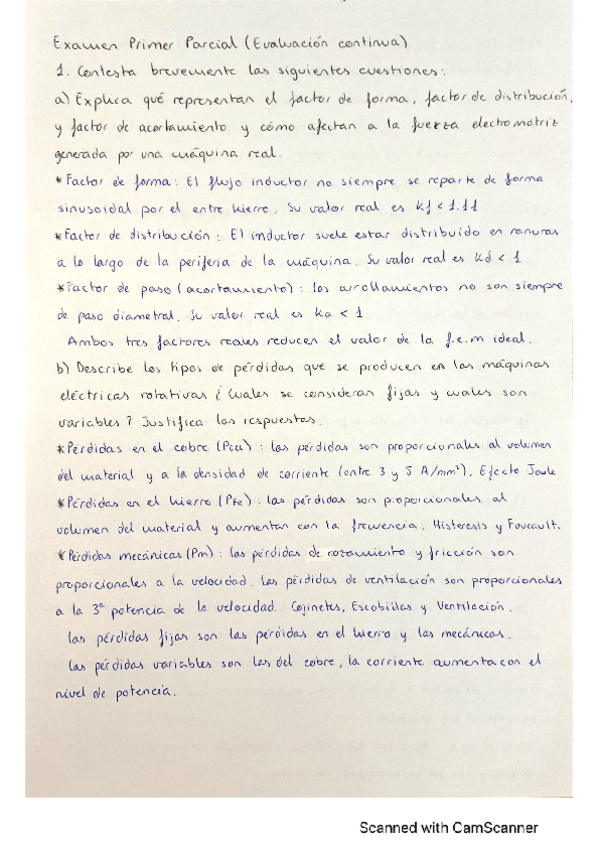 Examen Primer Parcial (Evaluación continua)
1. Contesta brevemente las siguientes cuestiones:
a) Explica qué representan el factor de forma, factor de distribución,
y factor de acortamiento y cómo afectan a la fuerza electromotriz
generada por una máquina real.
*Factor de forma: El flujo inductor no siempre se reparte de forma
sinusoidal por el entre hierro. Su valor real es Kf < 1.11
*Factor de distribución: El inductor suele estar distribuido en ranuras
a lo largo de la periferia de la máquina. Su valor real es Kd < 1
*Factor de paso (acortamiento): los arrollamientos no son siempre
de paso diametral. Su valor real es Ka < 1
Ambos tres factores reales reducen el valor de la f.e.m ideal.
b) Describe los tipos de pérdidas que se producen en las máquinas
eléctricas rotativas ¿ Cuales se consideran fijas y cuales son
variables? Justifica las respuestas.
*Pérdidas en el cobre (Pcu): las pérdidas son proporcionales al volumen
del material y a la densidad de corriente (entre 3 y 5 A/mm²). Efecto Joule
*Pérdidas en el hierro (PFe): las pérdidas son proporcionales al
volumen del material y aumentan con la frecuencia. Histeresis y Foucault.
*Pérdidas mecánicas (Pm): las pérdidas de rozamiento y fricción son
proporcionales a la velocidad. Las pérdidas de ventilación son proporcionales
a la 3ª potencia de la velocidad. Cojinetes, Escobillas y Ventilación.
las pérdidas fijas son las pérdidas en el hierro y las mecánicas.
las pérdidas variables son las del cobre, la corriente aumenta con el
nivel de potencia.
Scanned with CamScanner